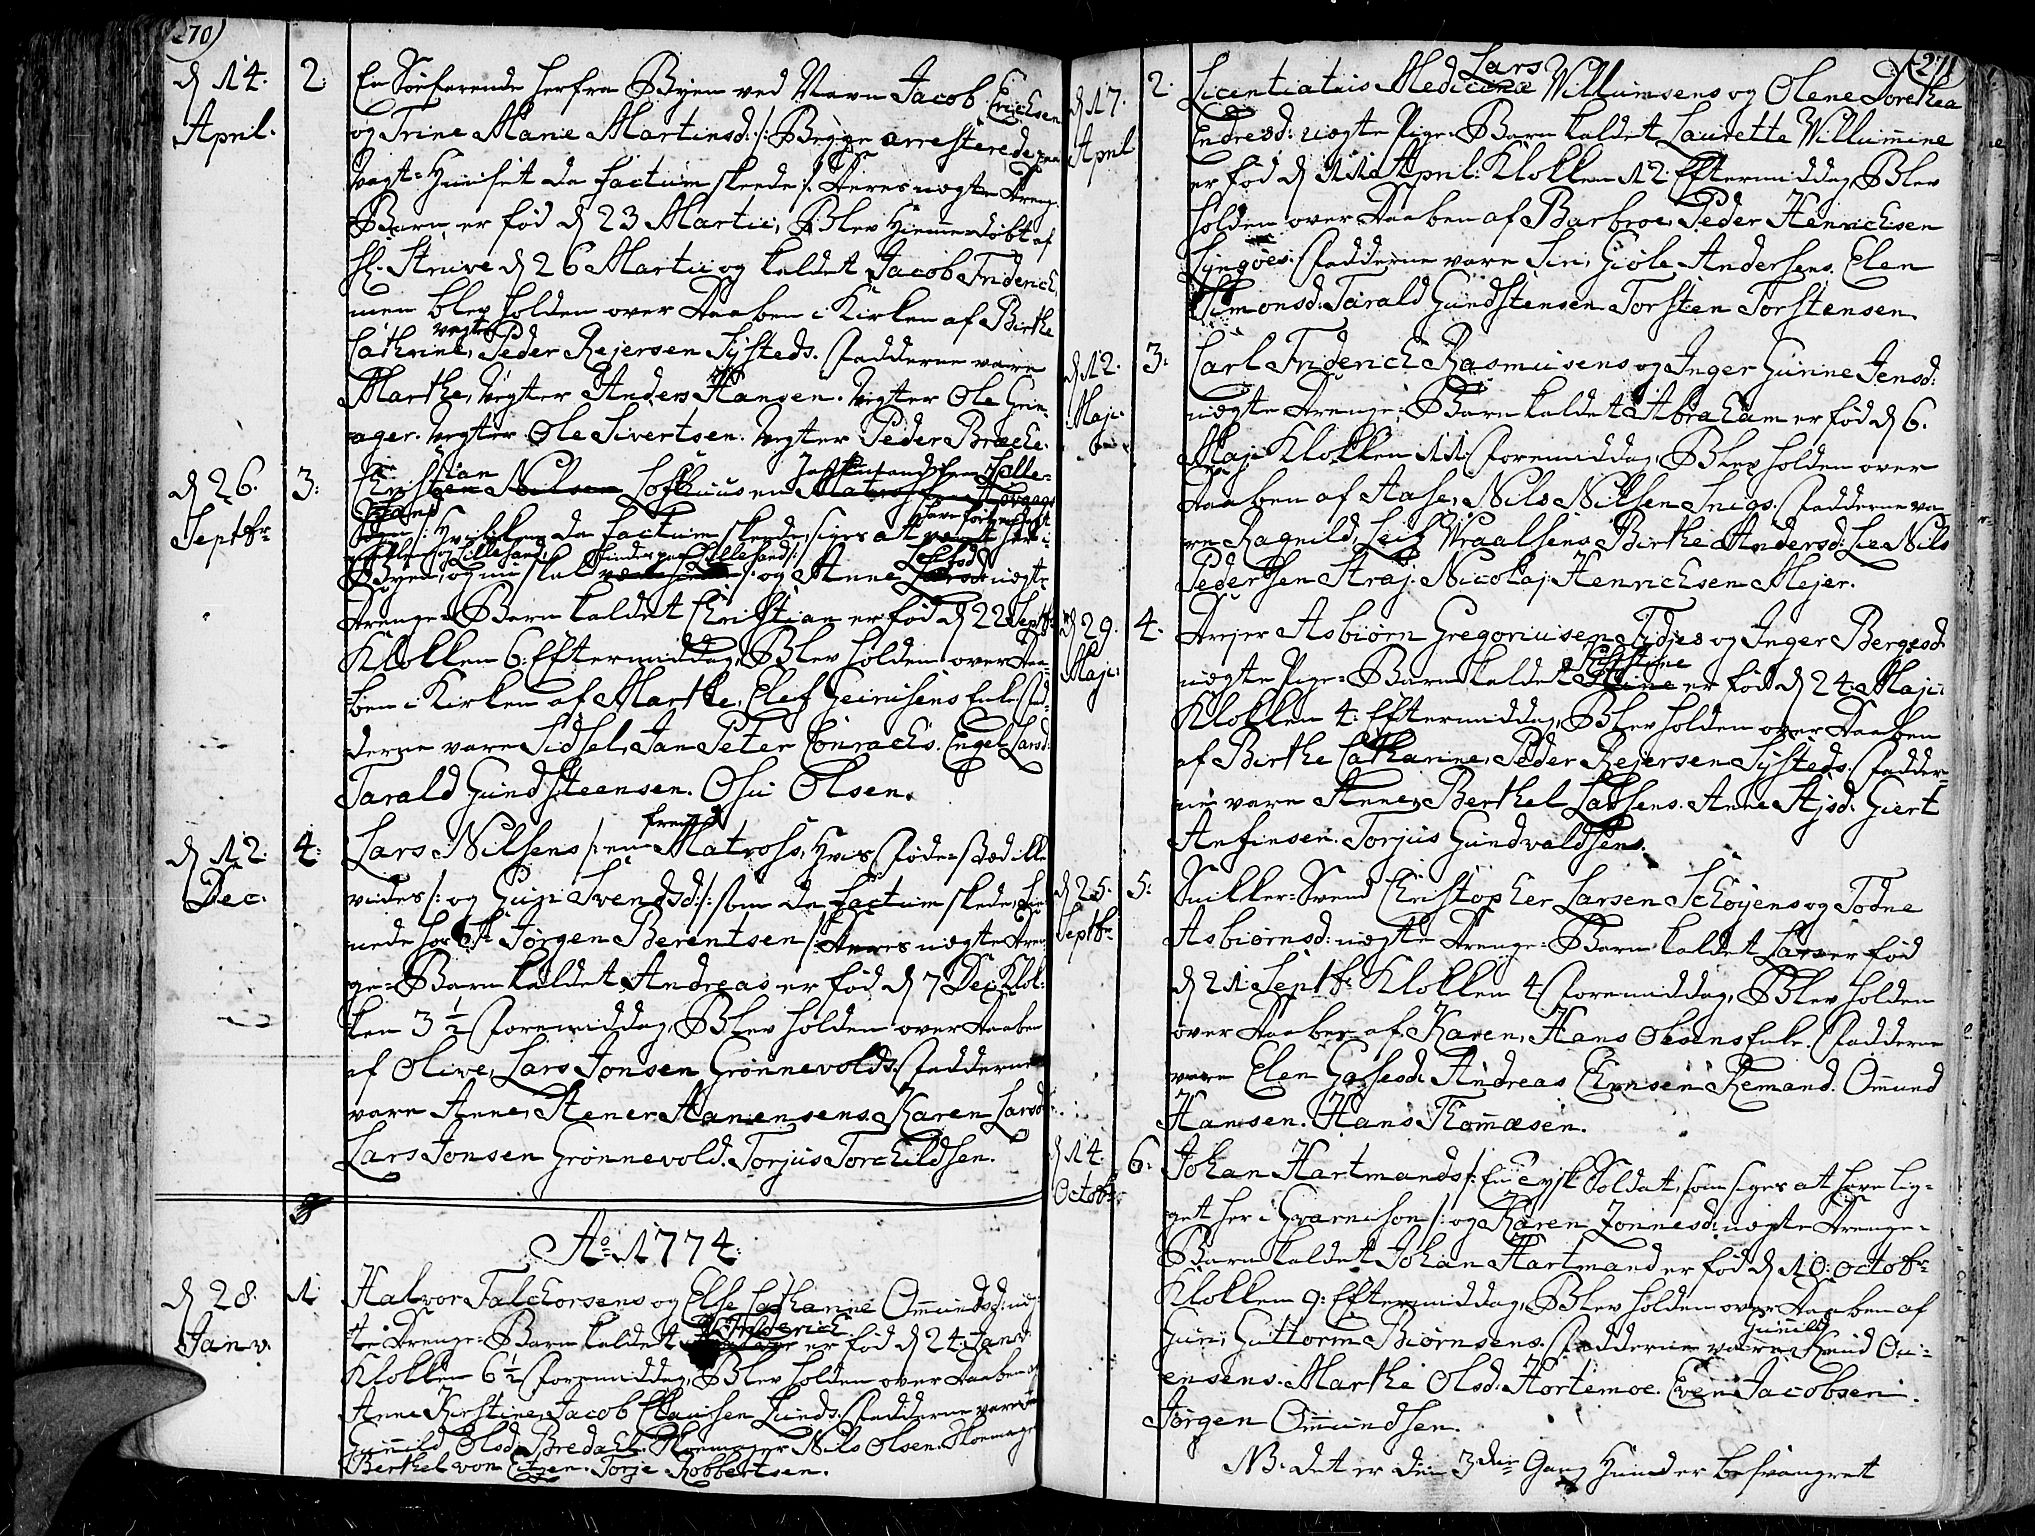 270)
d 14. April. 2. En Søefarende herfra Byen ved Navn Jacob Erichsen
og Trine Marie Martinsd: /: Begge arresterede paa
Vagt-Huuset da factum skeede :/ Deres uægte Drenge-
Barn er fød d 23 Martii, Blev Hiemmedøbt af
Hr. Struve d 26 Martii og kaldet Jacob Friderich,
men blev holden over Daaben i Kirken af Birthe
Cathrine, Vegter Peder Rejersen Systeds. Fadderne vare
Marthe, Vegter Anders Hansen. Vegter Ole Grim-
ager. Vegter Ole Sivertsen. Vegter Peder Bræche.
d 26. Septbr. 3: Christian Lofthuus en
da factum skeede, siges at
Byen, og nu skal /: og Anne uægte
Drenge-Barn kaldet Christian er fød d 22 Septbr.
Klokken 6. Eftermiddag, Blev holden over Daa-
ben i Kirken af Marthe, Elef Geruldsens Enke. Fad-
derne vare Sidsel, Jan Peter Conrachs. Engel Larsd:
Tarald Gundsteensen. Osu Olsen.
d 12. Dec. 4: Lars Nilsens /: en fremmed Matross, Hvis Føde-Sted ikke
vides :/ og Guri Svensd: /: som da factum skede, tie-
nede hos Jørgen Berentsen :/ Deres uægte Dren-
ge-Barn kaldet Andreas er fød d 7 Dec. Klok-
ken 3 1/2 Formiddag, Blev holden over Daaben
af Olive, Lars Jonsen Grønnevolds. Fadderne
vare Anne, Stener Hanensens. Karen Larsd:
Lars Jonsen Grønnevold. Torjus Torchildsen.
Ao 1774.
d 28. Janv. 1 Halvor Falchorsens og Else Cathrine Omundsd: uæg-
te Drenge-Barn kaldet Friderich er fød d 24. Janv.
Klokken 6 1/2 Formiddag, Blev holden over Daaben af
Anne Kirstine, Jacob Clausen Lunds. Fadderne vare
Gunnild Olsd: Bredahl. Skoemager Nils Olsen. Skoemager
Berthel von Eitzen. Torje Robbertsen.
(271
d 17. April 2. Licentiatus Medicinæ Lars Villumsens og Olene Dorethea
Endresd: uægte Pige-Barn kaldet Laurette Villumine
er fød d 11 April. Klokken 12. Eftermiddag, Blev
holden over Daaben af Barbroe, Peder Henrichsen
Lyngøes. Fadderne vare Siri, Giøle Andersens. Elen
Simonsd: Tarald Gundstensen. Torsten Torstensen.
d 12. Maji. 3. Carl Friderich Rasmusens og Inger Gurine Jensd:
uægte Drenge-Barn kaldet Abraham er fød d 6.
Maji Klokken 11. Formiddag, Blev holden over
Daaben af Aase, Nils Nilsen Snigs. Fadderne va-
re Ragnild, Leif Vraalsens. Birthe Andersd: Lie. Nils
Pedersen Straj. Nicolaj Henrichsen Mejer.
d 29. Maji. 4. Drejer Asbiørn Gregoriusen Tidjes og Inger Bergesd:
uægte Pige-Barn kaldet er fød d 24. Maji
Klokken 4. Eftermiddag, Blev holden over Daaben
af Birthe Catharine, Peder Rejersen Systeds. Fadder-
ne vare Anne, Berthel Lassens. Anne Stjsd: Giert
Anfinsen. Torjus Gundvaldsen.
d 25. Septbr. 5: Snilker-Svend Christopher Larsen Schøyens og Todne
Asbiørnsd: uægte Drenge-Barn kaldet Lars er fød
d 21 Septbr. Klokken 4 Formiddag, Blev holden
over Daaben af Karen, Hans Olsens Enke. Fadderne
vare Elen Gassesd: Andreas Ernsen Remand. Omund
Hansen. Hans Thommæsen.
d 14. Octobr. 6. Johan Hartmands /: En tydsk Soldat, som siges at have lig-
get her i Gvarnison :/ og Karen Zonnesd: uægte Drenge-
Barn kaldet Johan Hartman er fød d 10. Octobr.
Klokken 9. Eftermiddag, Blev holden over Daaben af
Guri, Guttorm Biørnsens. Fadderne vare Gunnild, Knud Ou-
ensens. Marthe Olsd. Hortemoe. Even Jacobsen.
Jørgen Omundsen.
NB. det er den 3die Gang Hun er besvangret